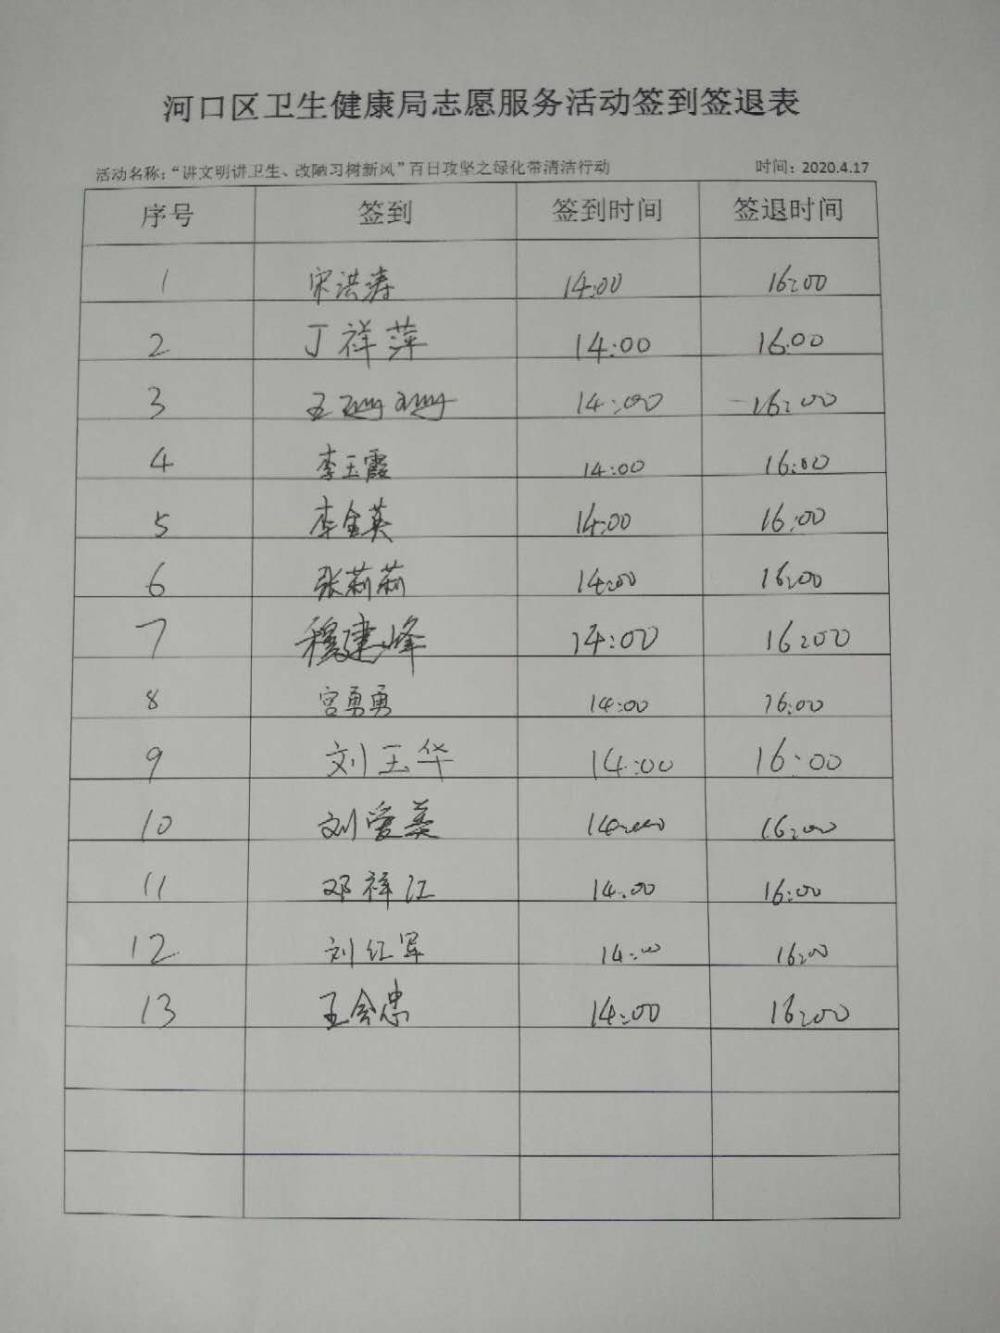 河口区卫生健康局志愿服务活动签到签退表
活动名称：“讲文明讲卫生、改陋习树新风”百日攻坚之绿化带清洁行动 时间：2020.4.17
序号 签到 签到时间 签退时间
1 宋洪涛 14:00 16:00
2 丁祥萍 14:00 16:00
3 王 14:00 16:00
4 李玉霞 14:00 16:00
5 李金英 14:00 16:00
6 张莉莉 14:00 16:00
7 穆建峰 14:00 16:00
8 宫勇勇 14:00 16:00
9 刘玉华 14:00 16:00
10 刘爱美 14:00 16:00
11 邓祥江 14:00 16:00
12 刘红军 14:00 16:00
13 王会忠 14:00 16:00